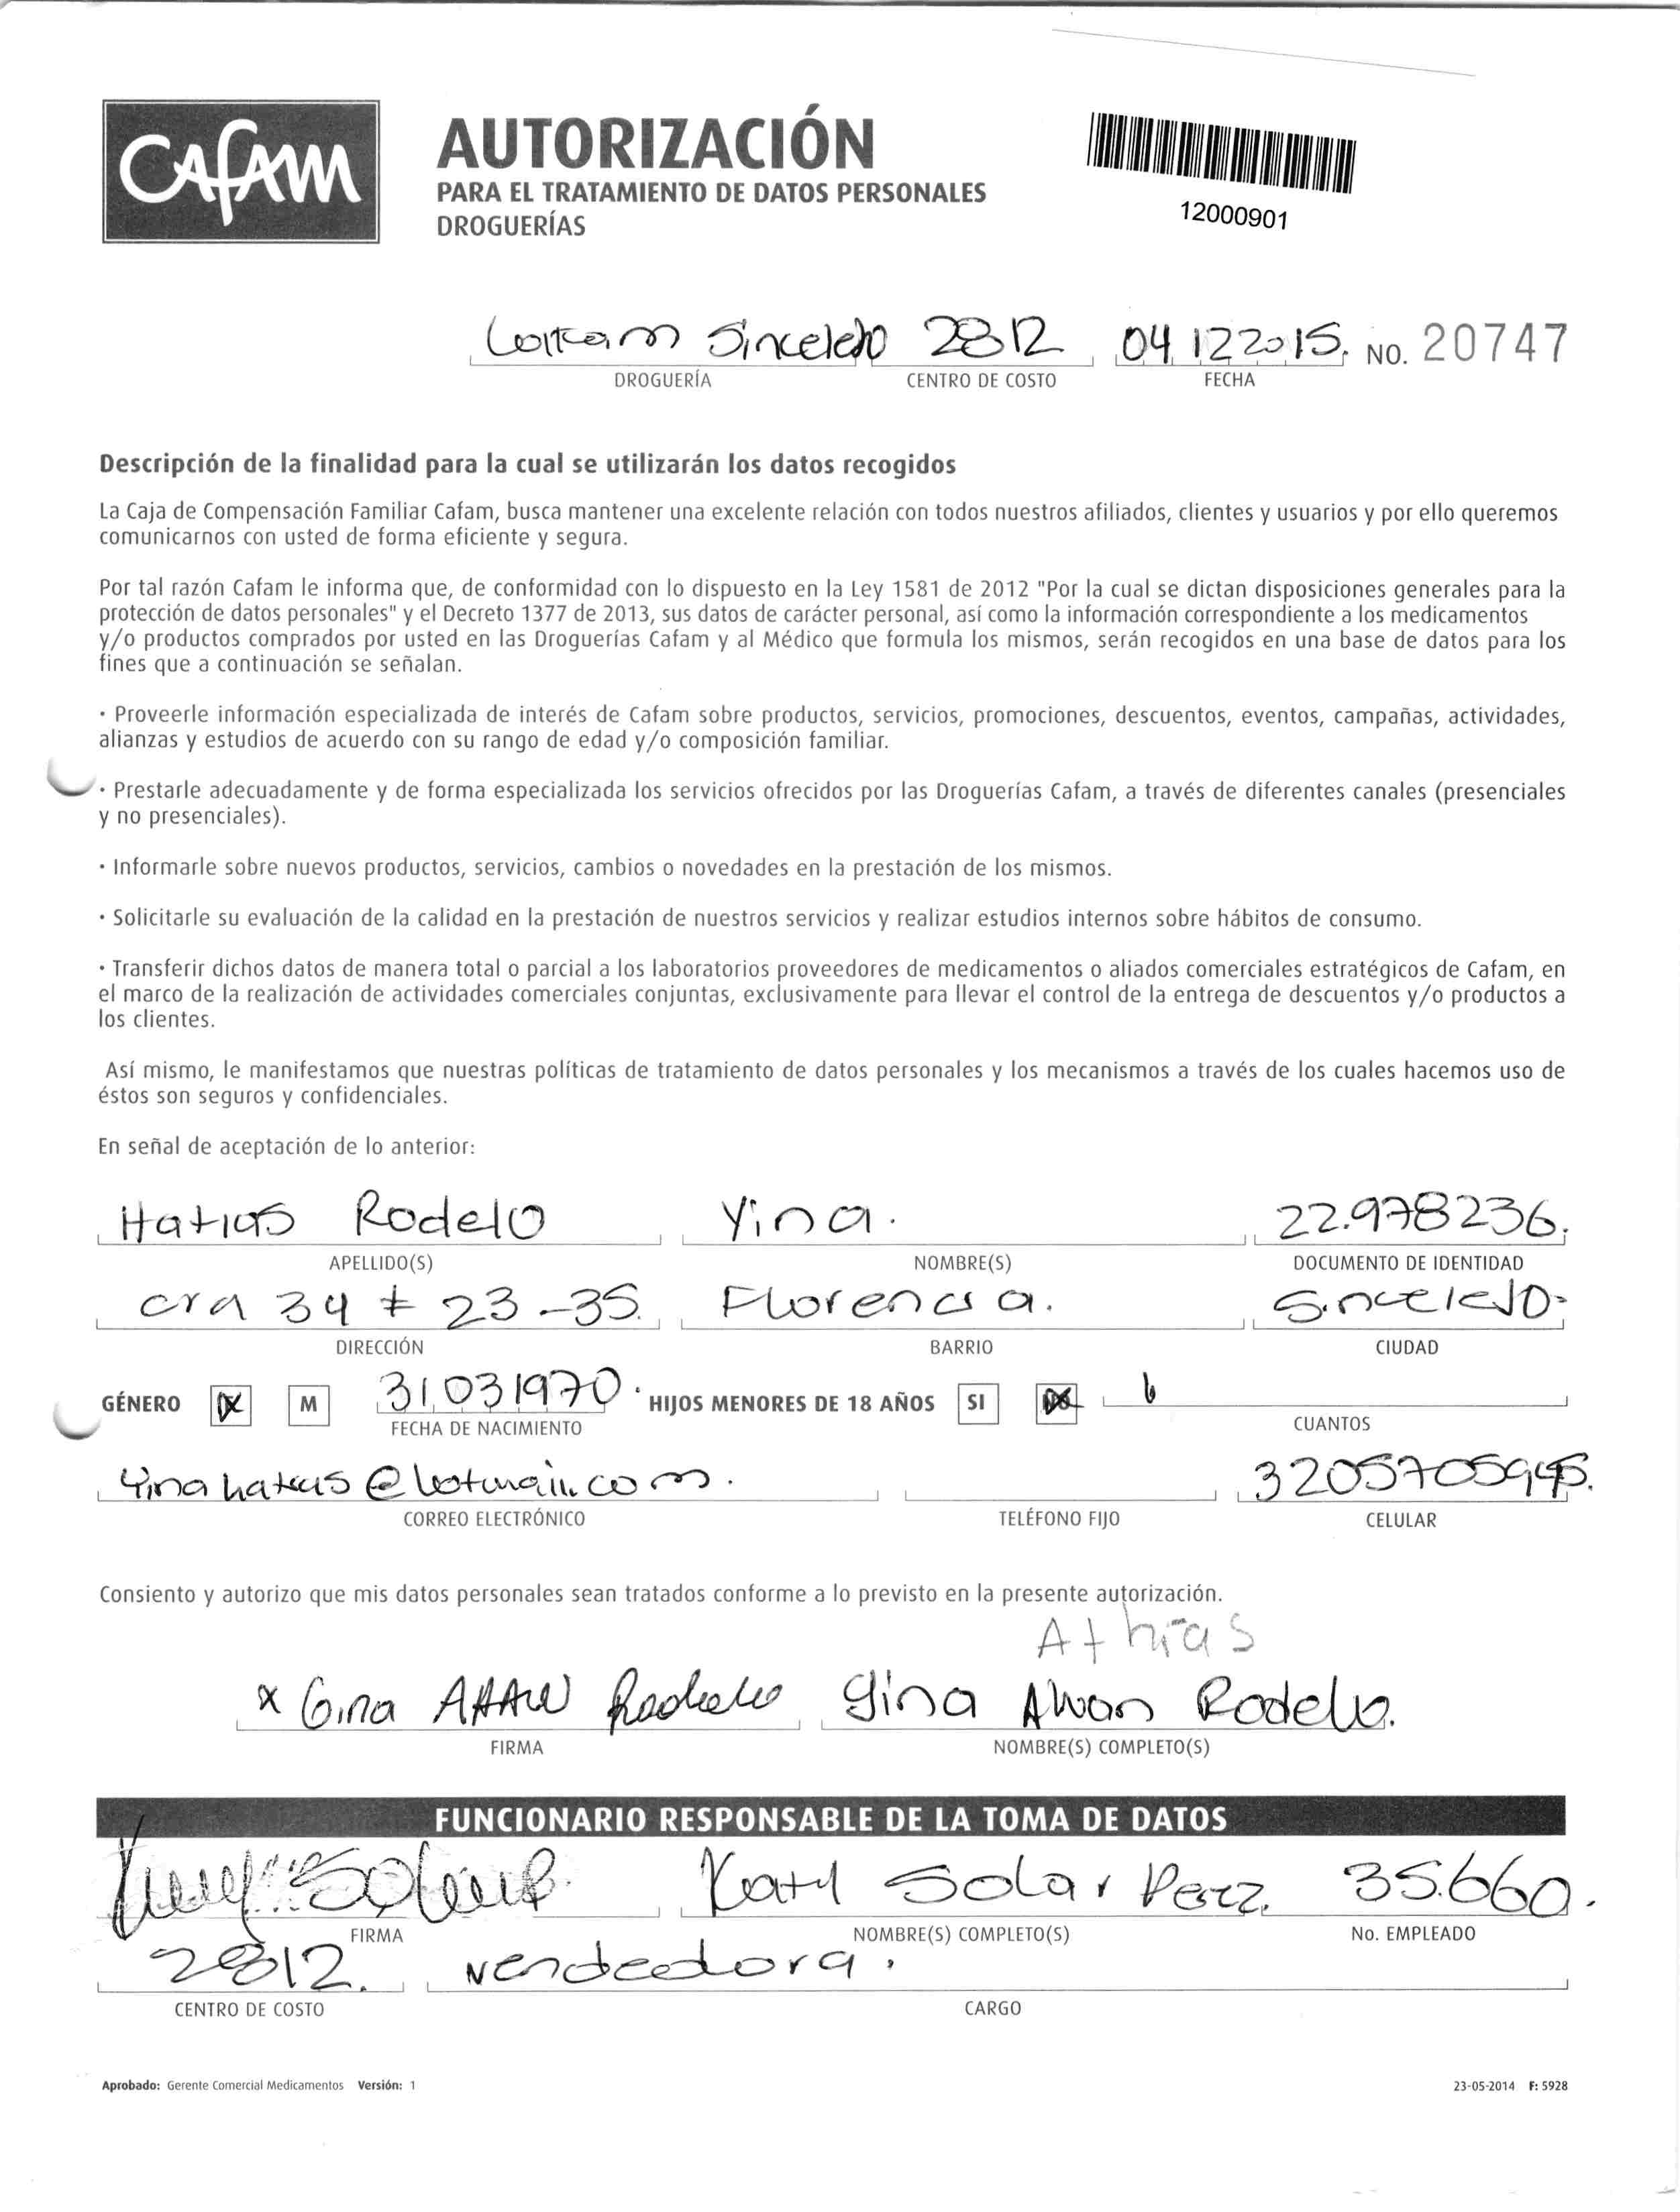 CAFAM
AUTORIZACIÓN
PARA EL TRATAMIENTO DE DATOS PERSONALES
DROGUERÍAS
12000901
Sincelejo 2812 04 12 2015. NO. 20747
DROGUERÍA CENTRO DE COSTO FECHA
Descripción de la finalidad para la cual se utilizarán los datos recogidos
La Caja de Compensación Familiar Cafam, busca mantener una excelente relación con todos nuestros afiliados, clientes y usuarios y por ello queremos
comunicarnos con usted de forma eficiente y segura.
Por tal razón Cafam le informa que, de conformidad con lo dispuesto en la Ley 1581 de 2012 "Por la cual se dictan disposiciones generales para la
protección de datos personales" y el Decreto 1377 de 2013, sus datos de carácter personal, así como la información correspondiente a los medicamentos
y/o productos comprados por usted en las Droguerías Cafam y al Médico que formula los mismos, serán recogidos en una base de datos para los
fines que a continuación se señalan.
· Proveerle información especializada de interés de Cafam sobre productos, servicios, promociones, descuentos, eventos, campañas, actividades,
alianzas y estudios de acuerdo con su rango de edad y/o composición familiar.
· Prestarle adecuadamente y de forma especializada los servicios ofrecidos por las Droguerías Cafam, a través de diferentes canales (presenciales
y no presenciales).
· Informarle sobre nuevos productos, servicios, cambios o novedades en la prestación de los mismos.
· Solicitarle su evaluación de la calidad en la prestación de nuestros servicios y realizar estudios internos sobre hábitos de consumo.
· Transferir dichos datos de manera total o parcial a los laboratorios proveedores de medicamentos o aliados comerciales estratégicos de Cafam, en
el marco de la realización de actividades comerciales conjuntas, exclusivamente para llevar el control de la entrega de descuentos y/o productos a
los clientes.
Así mismo, le manifestamos que nuestras políticas de tratamiento de datos personales y los mecanismos a través de los cuales hacemos uso de
éstos son seguros y confidenciales.
En señal de aceptación de lo anterior:
Hatias Rodelo Yina. 22.978236.
APELLIDO(S) NOMBRE(S) DOCUMENTO DE IDENTIDAD
cra 34 # 23-35. Florencia. Sincelejo.
DIRECCIÓN BARRIO CIUDAD
GÉNERO M 31 03 1970. HIJOS MENORES DE 18 AÑOS SI
FECHA DE NACIMIENTO CUANTOS
3205705995.
CORREO ELECTRÓNICO TELÉFONO FIJO CELULAR
Consiento y autorizo que mis datos personales sean tratados conforme a lo previsto en la presente autorización.
Athias
x Gina Rodelo Gina Rodelo.
FIRMA NOMBRE(S) COMPLETO(S)
FUNCIONARIO RESPONSABLE DE LA TOMA DE DATOS
Katy Solar Perez. 35.660.
FIRMA NOMBRE(S) COMPLETO(S) No. EMPLEADO
2812. vendedora.
CENTRO DE COSTO CARGO
Aprobado: Gerente Comercial Medicamentos Versión: 1 23-05-2014 F: 5928